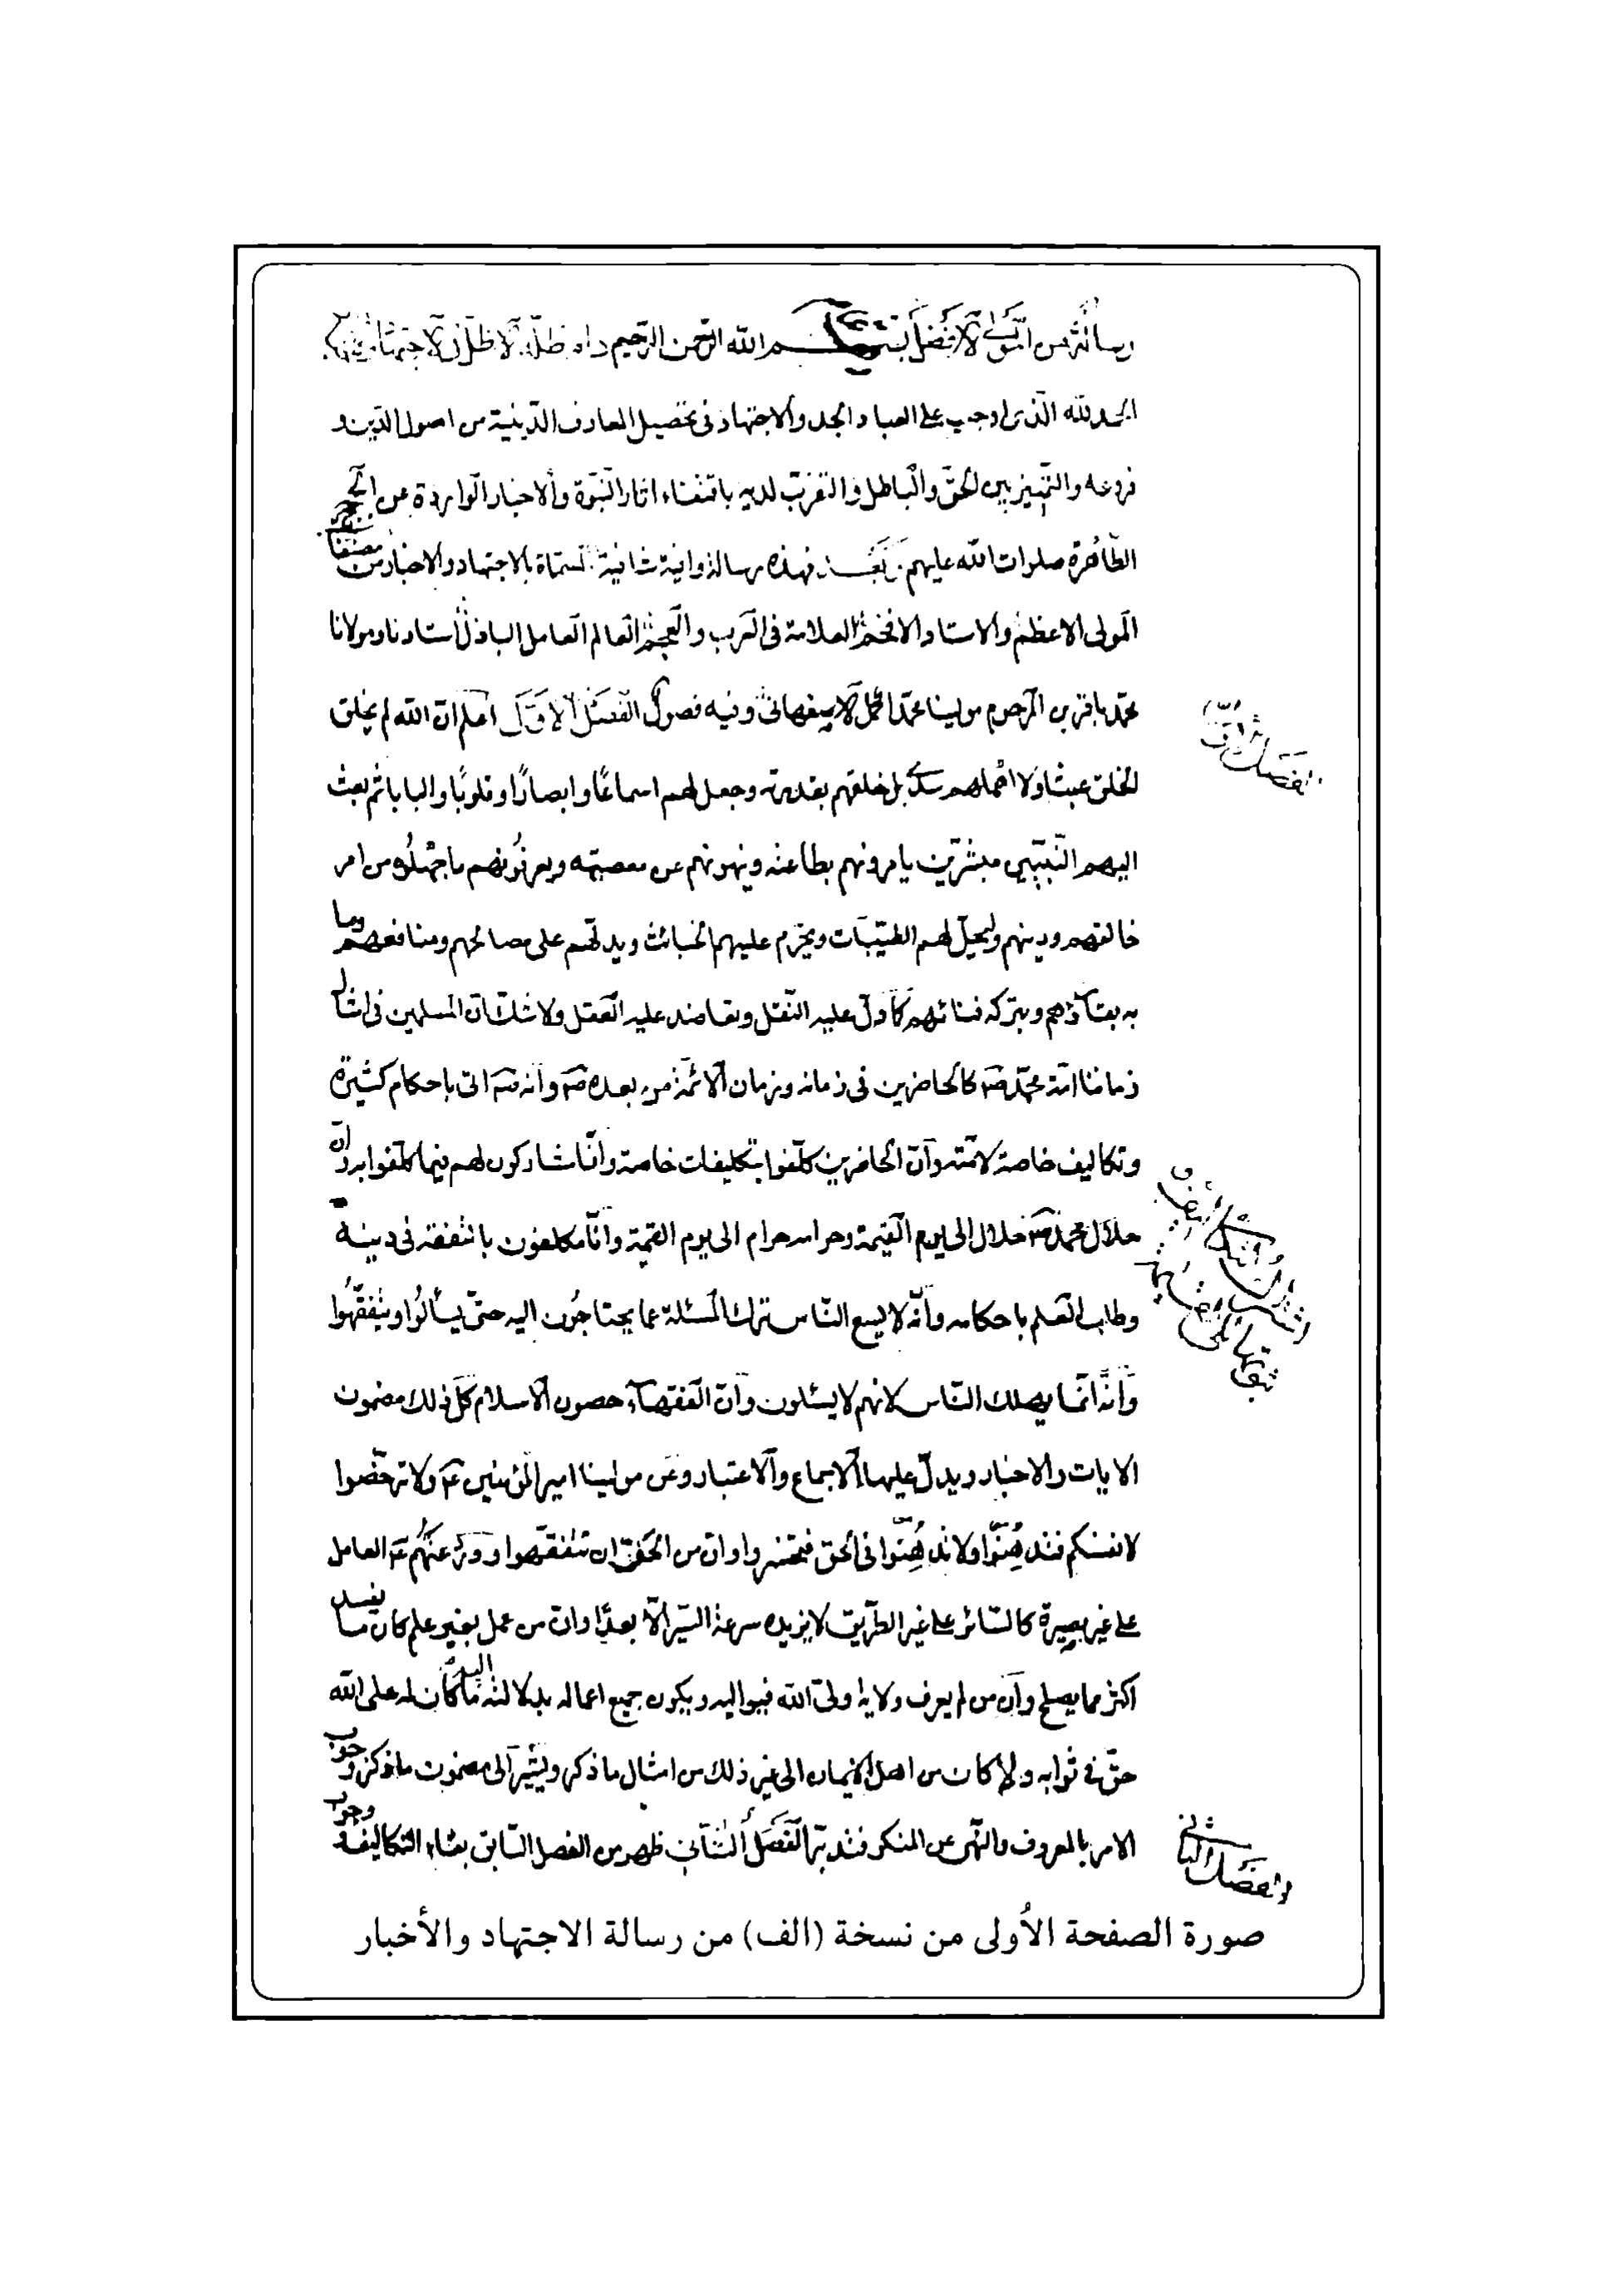 رسالة من المولى الافضل بسم الله الرحمن الرحيم دام ظله الاظل في الاجتهاد
الحمد لله الذى اوجب على العباد الجد والاجتهاد فى تحصيل المعارف الدّينية من اصول الدّين و
فروعه والتّميز بين الحقّ والباطل والتقرّب لديه باقتفاء اثار النّبوّة والاخبار الواردة عن الحجج
الطّاهرة صلوات الله عليهم وبعد فهذه رسالة وافية شافية المسماة بالاجتهاد والاخبار من مصنفات
المولى الاعظم والاستاد الافخم العلامة فى العرب والعجم العالم العامل الباذل استادنا ومولانا
محمّد باقر بن المرحوم مولينا محمّد اكمل الاصفهانى وفيه فصول الفصل الاوّل اعلم انّ الله لم يخلق
الخلق عبثا ولا اهملهم سدى بل خلقهم بقدرته وجعل لهم اسماعًا وابصارًا وقلوبًا والبابا ثم بعث
اليهم النّبيّين مبشّرين يامرونهم بطاعته وينهونهم عن معصيته ويعرّفونهم ما جهلوه من امر
خالقهم ودينهم وليحلّ لهم الطيّبات ويحرّم عليهم الخبائث ويدلّهم على مصالحهم ومنافعهم وما
به بقاؤهم وبتركه فنائهم كما دلّ عليه النّقل وتعاضد عليه العقل ولا شكّ انّ المسلمين فى امثال
زماننا امّة محمّد صم كالحاضرين فى زمانه وزمان الائمّة من بعده صم وانه صم اتى باحكام كثيرة
وتكاليف خاصة لامّته وانّ الحاضرين كلّفوا بتكليفات خاصة وانّا مشاركون لهم فيما كلّفوا به وانّ
حلال محمّد صم حلال الى يوم القيمة وحرامه حرام الى يوم القيمة وانّا مكلفون بالتفقه فى دينه
وطلب العلم باحكامه وانّه لا يسع النّاس ترك المسئلة عما يحتاجون اليه حتّى يسألوا ويتفقّهوا
وانّه انّما يهلك النّاس لانهم لا يسئلون وانّ الفقهاء حصون الاسلام كلّ ذلك مضمون
الايات والاخبار ويدلّ عليها الاجماع والاعتبار وعن مولينا امير المؤمنين عم ولا ترخّصوا
لانفسكم فتدهنوا ولا تدهنوا فى الحق فتخسروا وانّ من الحقّ ان تتفقّهوا وورد عنهم عم العامل
على غير بصيرة كالسّائر على غير الطّريق لا يزيده سرعة السّير الّا بعدًا وانّ من عمل بغير علم كان ما يفسد
اكثر مما يصلح وانّ من لم يعرف ولاية ولىّ الله فيواليه ويكون جميع اعماله بدلالته اليه ما كان له على الله
حقّ فى ثوابه ولا كان من اهل الايمان الى غير ذلك من امثال ما ذكر ويشير الى مضمون ما ذكر وجوب
الامر بالمعروف والنّهى عن المنكر فتدبّر الفصل الثّانى ظهر من الفصل السّابق بقاء التكاليف وجوب
الفصل الاوّل
الفصل الثاني
صورة الصفحة الأولى من نسخة (الف) من رسالة الاجتهاد والأخبار